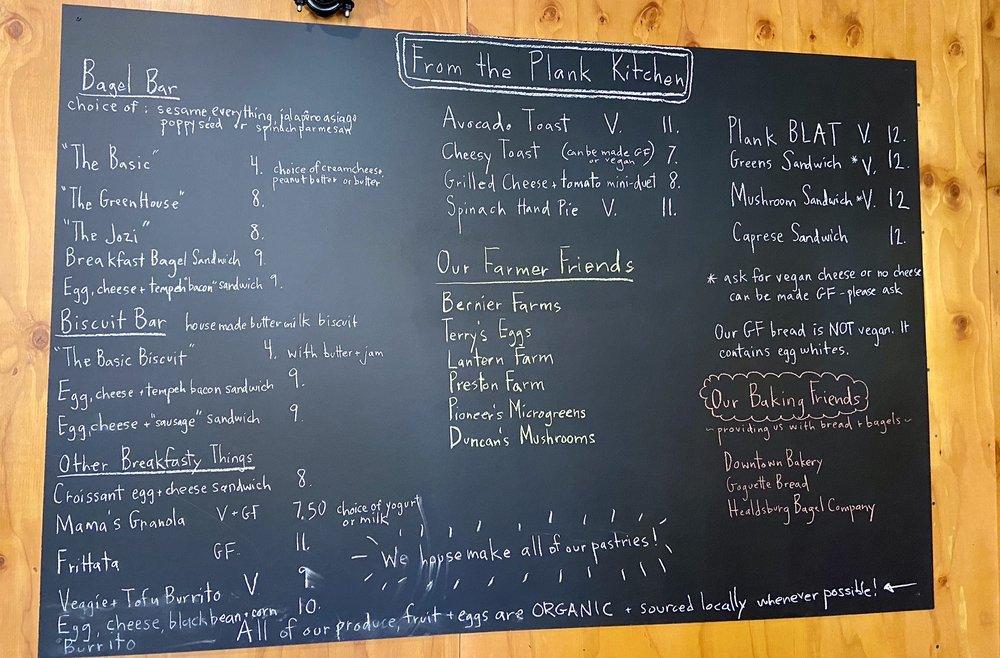 Bagel Bar
choice of : sesame, everything, jalapeño asiago
poppyseed or spinach parmesan
"The Basic" 4. choice of creamcheese,
peanut butter or butter
"The GreenHouse" 8.
"The Jozi" 8.
Breakfast Bagel Sandwich 9.
Egg, cheese + tempeh "bacon" sandwich 9.
Biscuit Bar house made butter milk biscuit
"The Basic Biscuit" 4. with butter + jam
Egg, cheese + tempeh bacon sandwich 9.
Egg, cheese + "sausage" sandwich 9.
Other Breakfasty Things
Croissant egg + cheese sandwich 8.
Mama's Granola V + GF 7.50 choice of yogurt
or milk
Frittata GF. 11.
Veggie + Tofu Burrito V 9.
Egg, cheese, black bean + corn 10.
Burrito
From the Plank Kitchen
Avocado Toast V. 11.
Cheesy Toast (can be made GF
or vegan) 7.
Grilled Cheese + tomato mini-duet 8.
Spinach Hand Pie V. 11.
Our Farmer Friends
Bernier Farms
Terry's Eggs
Lantern Farm
Preston Farm
Pioneer's Microgreens
Duncan's Mushrooms
Plank BLAT V. 12.
Greens Sandwich *V. 12.
Mushroom Sandwich *V. 12
Caprese Sandwich 12.
* ask for vegan cheese or no cheese
can be made GF - please ask
Our GF bread is NOT vegan. It
contains egg whites.
Our Baking Friends
~ providing us with bread + bagels ~
Downtown Bakery
Goguette Bread
Healdsburg Bagel Company
We house make all of our pastries!
All of our produce, fruit + eggs are ORGANIC + sourced locally whenever possible!